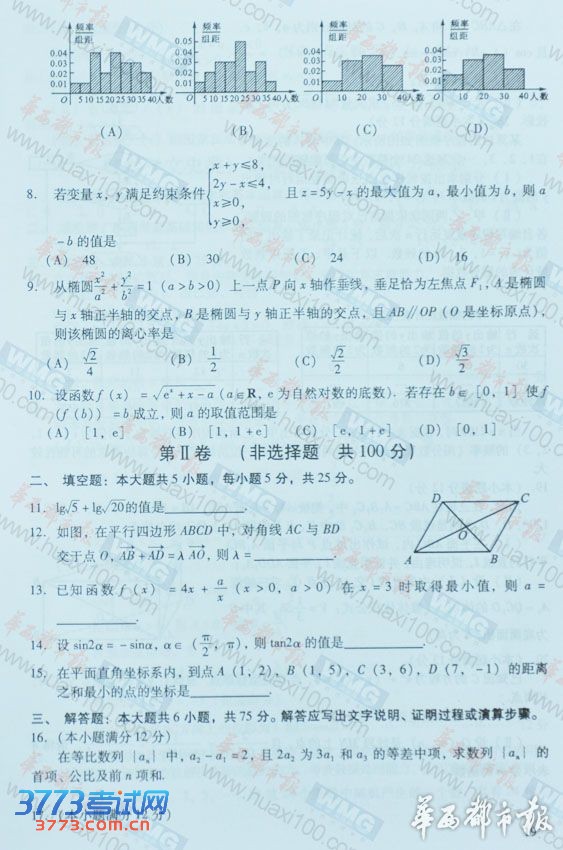 频率 频率 频率 频率
组距 组距 组距 组距
0.04 0.05 0.04 0.04
0.03 0.04 0.03 0.03
0.02 0.03 0.02 0.02
0.01 0.02 0.01 0.01
0.01
O 5 10 15 20 25 30 35 40 人数 O 5 10 15 20 25 30 35 40 人数 O 10 20 30 40 人数 O 10 20 30 40 人数
(A) (B) (C) (D)
8. 若变量 x, y 满足约束条件 { x+y≤8, 2y-x≤4, x≥0, y≥0, 且 z=5y-x 的最大值为 a, 最小值为 b, 则 a
-b 的值是
(A) 48 (B) 30 (C) 24 (D) 16
9. 从椭圆 x²/a² + y²/b² = 1 (a>b>0) 上一点 P 向 x 轴作垂线, 垂足恰为左焦点 F₁, A 是椭圆
与 x 轴正半轴的交点, B 是椭圆与 y 轴正半轴的交点, 且 AB∥OP (O 是坐标原点),
则该椭圆的离心率是
(A) √2/4 (B) 1/2 (C) √2/2 (D) √3/2
10. 设函数 f (x) = √(eˣ+x-a) (a∈R, e 为自然对数的底数). 若存在 b∈[0, 1] 使 f
(f (b)) =b 成立, 则 a 的取值范围是
(A) [1, e] (B) [1, 1+e] (C) [e, 1+e] (D) [0, 1]
第Ⅱ卷 (非选择题 共 100 分)
二、 填空题: 本大题共 5 小题, 每小题 5 分, 共 25 分。
11. lg√5 + lg√20的值是__________.
12. 如图, 在平行四边形 ABCD 中, 对角线 AC 与 BD
交于点 O, AB + AD = λ AO, 则 λ = __________.
D C
O
A B
13. 已知函数 f (x) = 4x + a/x (x>0, a>0) 在 x = 3 时取得最小值, 则 a =
__________.
14. 设 sin2α = - sinα, α∈ (π/2, π), 则 tan2α 的值是__________.
15. 在平面直角坐标系内, 到点 A (1, 2), B (1, 5), C (3, 6), D (7, -1) 的距离
之和最小的点的坐标是__________.
三、 解答题: 本大题共 6 小题, 共 75 分。解答应写出文字说明、证明过程或演算步骤。
16. (本小题满分 12 分)
在等比数列 {aₙ} 中, a₂ - a₁ = 2, 且 2a₂ 为 3a₁ 和 a₃ 的等差中项, 求数列 {aₙ} 的
首项、公比及前 n 项和.
17. (本小题满分 12 分)
3773考试网
3773.com.cn
华西都市报
www.huaxi100.com
WMG